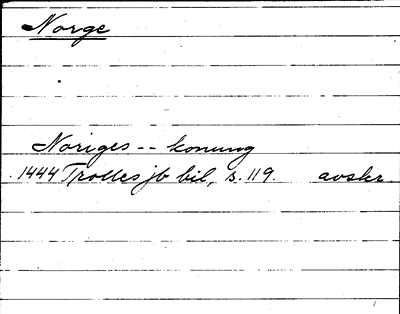 Norge
Noriges -- konung
1444 Trolles jb bil, s. 119. avskr.